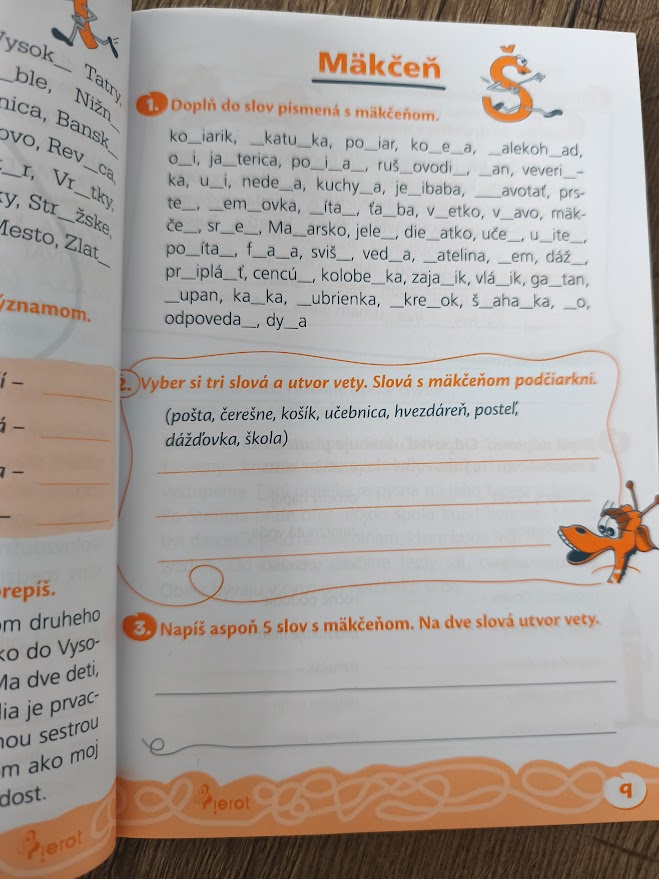 Vysok__ Tatry,
__ble, Nižn__
nica, Bansk__
ovo, Rev__ca,
__r, Vr__tky,
ky, Str__žske,
Mesto, Zlat__
ýznamom.
í –
á –
a –
–
prepíš.
om druheho
ko do Vyso-
Ma dve deti,
lia je prvac-
nou sestrou
m ako moj
dost.
Pierot
Mäkčeň
Š
1. Doplň do slov písmená s mäkčeňom.
ko__iarik, __katu__ka, po__iar, ko__e__a, __alekoh__ad,
o__i, ja__terica, po__i__a__, ruš__ovodi__, __an, veveri__-
ka, u__i, nede__a, kuchy__a, je__ibaba, ___avotať, prs-
te__, __em__ovka, __íta__, ťa__ba, v__etko, v__avo, mäk-
če__, sr__e__, Ma__arsko, jele__, die__atko, uče__, u__ite__,
po__íta__, f__a__a, sviš__, ved__a, __atelina, __em, dáž__,
pr__iplá__ť, cencú__, kolobe__ka, zaja__ik, vlá__ik, ga__tan,
__upan, ka__ka, __ubrienka, __kre__ok, š__aha__ka, __o,
odpoveda__, dy__a
2. Vyber si tri slová a utvor vety. Slová s mäkčeňom podčiarkni.
(pošta, čerešne, košík, učebnica, hvezdáreň, posteľ,
dážďovka, škola)
3. Napíš aspoň 5 slov s mäkčeňom. Na dve slová utvor vety.
Pierot
9